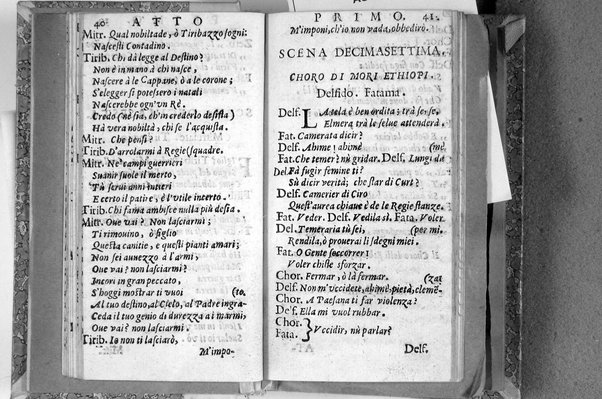 40 ATTO
Mitr. Qual nobiltade, ò Tiribazzo sogni:
Nascesti Contadino.
Tirib. Chi dà legge al Destino?
Non è in mano à chi nasce,
Nascere à le Cappane, ò a le corone;
S'elegger si potessero i natali
Nascerebbe ogn'vn Rè.
Credo (nè sia, ch'in crederlo desista)
Hà vera nobiltà, chi se l'acquista.
Mitr. Che pensi?
Tirib. D'arrolarmi à Regie squadre.
Mitr. Ne' campi guerrieri
Suanir suole il merto,
Tù serui anni intieri
E certo il patire, è l'vtile incerto.
Tirib. Chi fama ambisce nulla più desta.
Mitr. Oue vai? Non lasciarmi;
Ti rimouino, ò figlio
Questa canitie, e questi pianti amari;
Non sei auuezzo à l'armi,
Oue vai? non lasciarmi?
Incori in gran peccato,
S'hoggi mostrar ti vuoi (to.
Al tuo destino, al Cielo, al Padre ingra-
Ceda il tuo genio di durezza ai marmi,
Oue vai? non lasciarmi.
Tirib. Io non ti lasciarò,
M'impo-
PRIMO. 41
M'imponi, ch'io non vada, obbedirò.
SCENA DECIMASETTIMA.
CHORO DI MORI ETHIOPI
Delfido. Fatama.
Delf. LA tela è ben ordita; trà se-se,
Elmera trà le selue attenderà.
Fat. Camerata dicir?
Delf. Ahime! ahimè (me.
Fat. Che temer? nù gridar. Delf. Lungi da
Del. Fà fugir femine ti?
Sù dicir verità; che star di Curt?
Delf. Camerier di Ciro
Quest'aurea chiaue è de le Regie stanze.
Fat. Veder. Delf. Vedila sì. Fata. Voler
Del. Temeraria tù sei, (per mi.
Rendila, ò prouerai li sdegni miei.
Fat. O Gente soccorrer!
Voler chiste sforzar.
Chor. Fermar, ò là fermar. (za:
Delf. Non m'vccidete, ahimè, pietà, clemē-
Chor. A Paesana ti far violenza?
Delf. Ella mi vuol rubbar.
Chor. } Vccidir, nù parlar?
Fata. }
Delf.